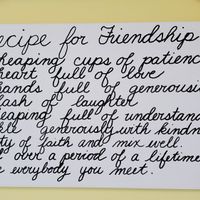 ecipe for Friendship
heaping cups of patienc
heart full of love
hands full of generousi
lash of laughter
eaping full of understand
generously with kindn
ty of faith and mix well.
over a period of a lifetime
evrybody you meet.